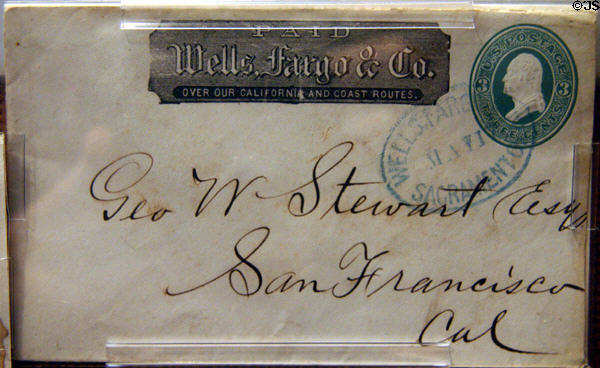 ©JS
PAID
Wells, Fargo & Co.
OVER OUR CALIFORNIA AND COAST ROUTES.
U.S. POSTAGE
3 3
THREE CENTS
WELLS, FARGO
SACRAMENTO
Geo W Stewart Esq
San Francisco
Cal